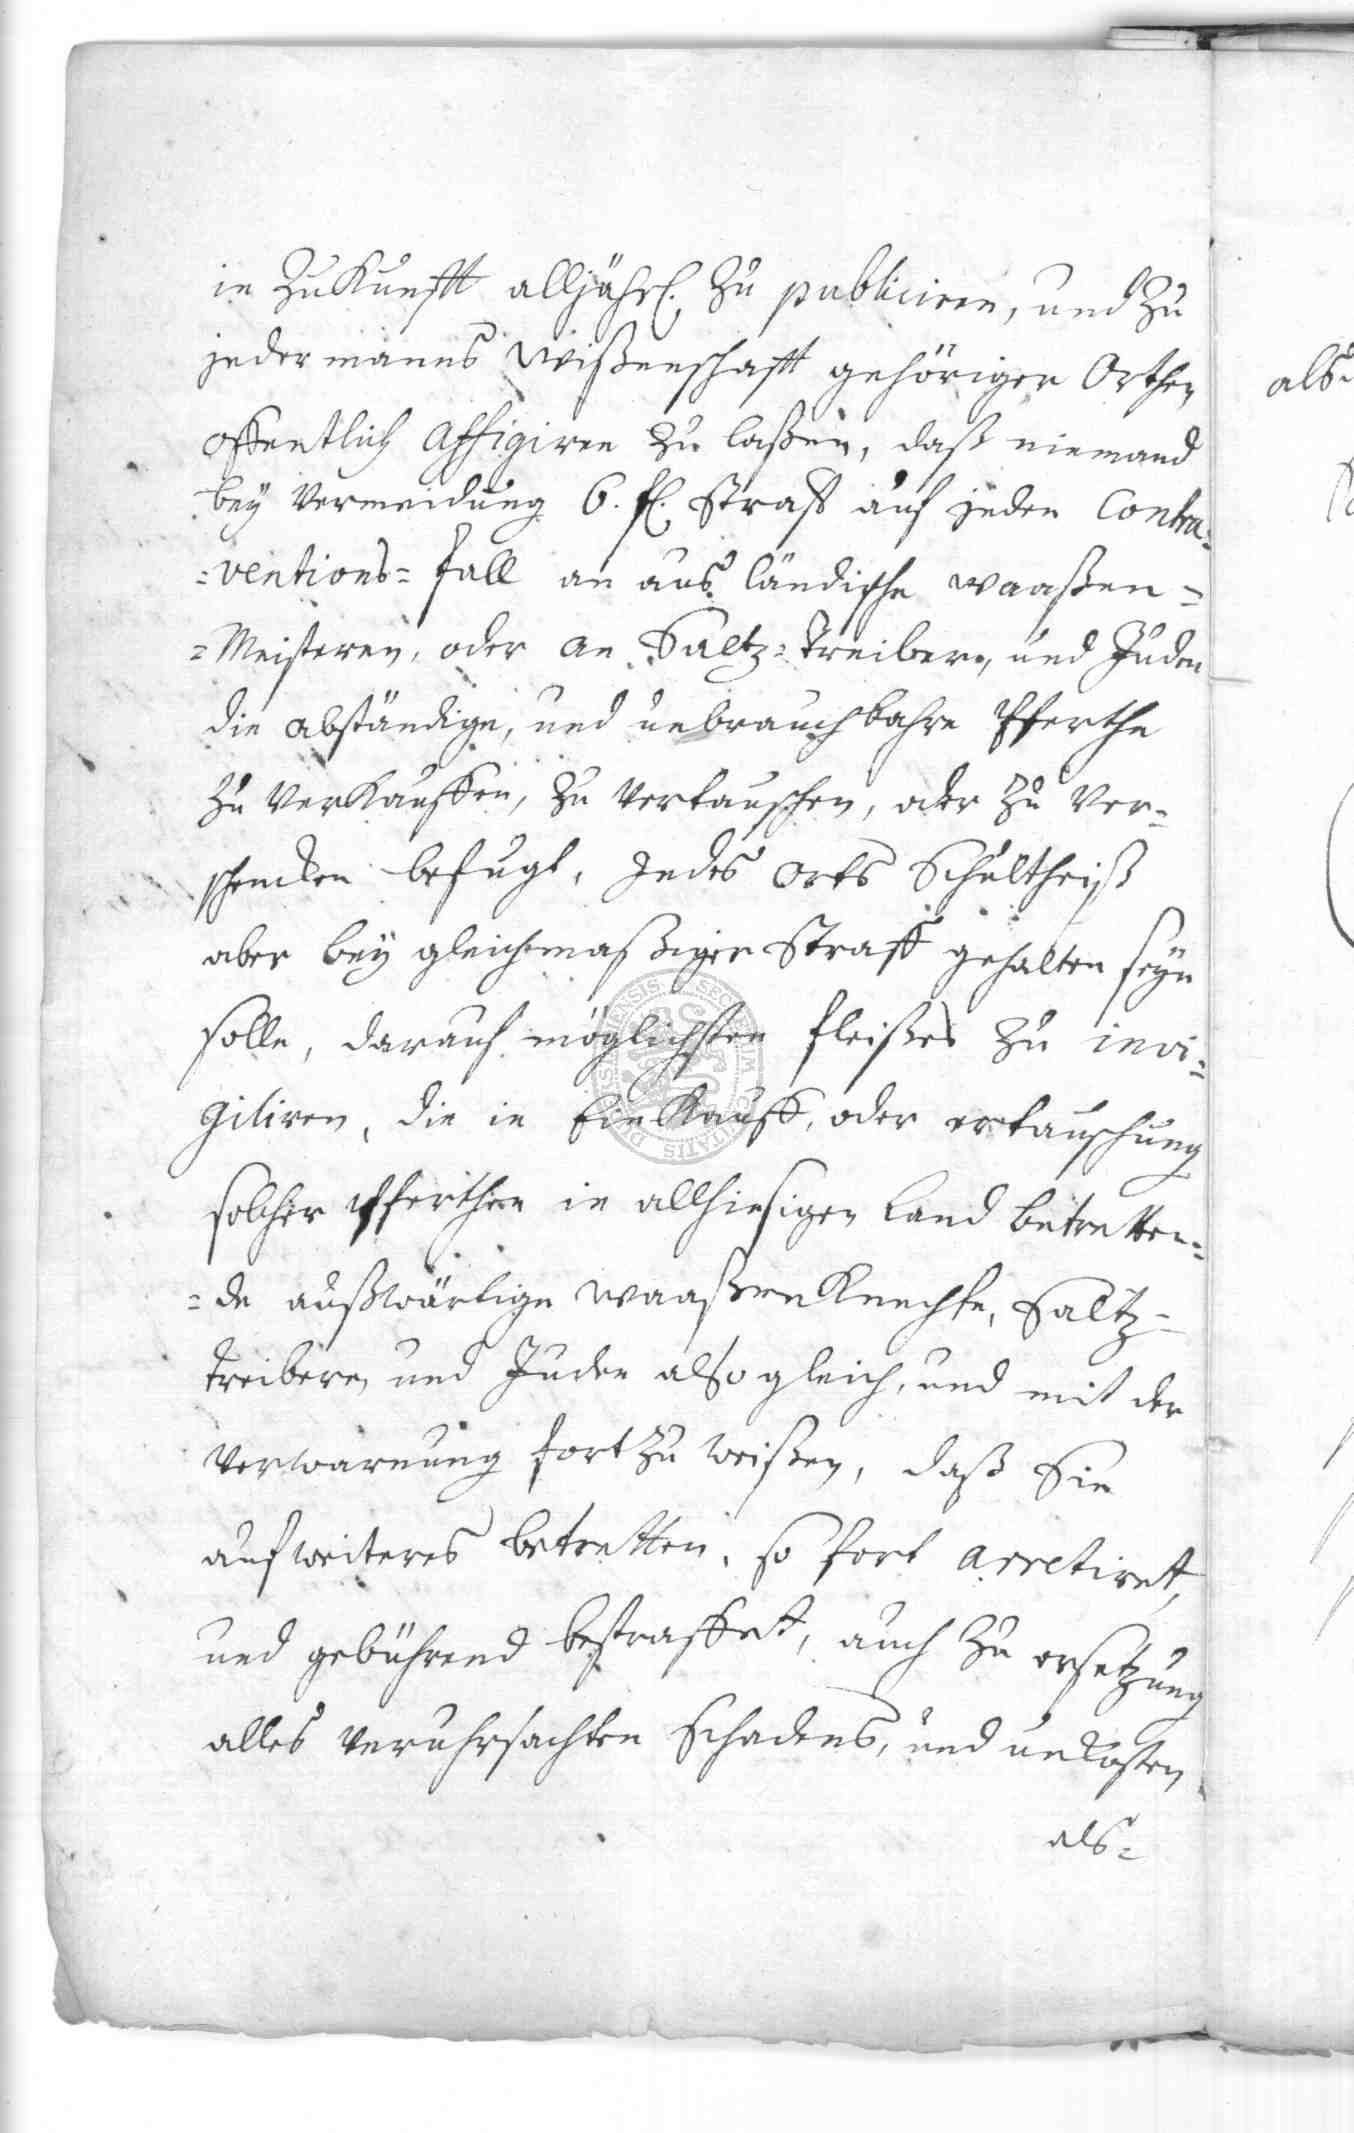 in Zukunfft alljährl. zu publiciren, und zu
jedermanns wißenschafft gehöriger Orthen
offentlich affigiren zu laßen, daß niemand
bey Vermeidung 6. fl. straff auf jeden Contra=
=ventions= fall an ausländische waaßen=
=Meisteren, oder an Saltz=Treibern, und Juden
die abständige, und unbrauchbahre Pferthe
zu Verkauffen, zu vertauschen, oder zu Ver=
schencken befugt, Jedes Orts Schultheiß
aber bey gleichmaßiger Straff gehalten seyn
solle, darauf möglichsten fleißes zu invi=
giliren, die in Einkauff, oder ertauschung
solcher Pferthen in allhiesigen Land betretten=
=de außwärtige waaßenKnechte, Saltz=
treibern und Juden also gleich, und mit der
verwarnung fort zu weißen, daß Sie
auf weiteres betretten, so fort arretirett,
und gebührend bestraffet, auch zu ersetzung
alles veruhrsachten Schadens, und unkosten
als=
als=
SECRETUM CIVITATIS